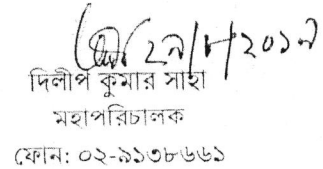 ২৭/৮/২০১৭
দিলীপ কুমার সাহা
মহাপরিচালক
ফোন: ০২-৯১৩৮৬৬১